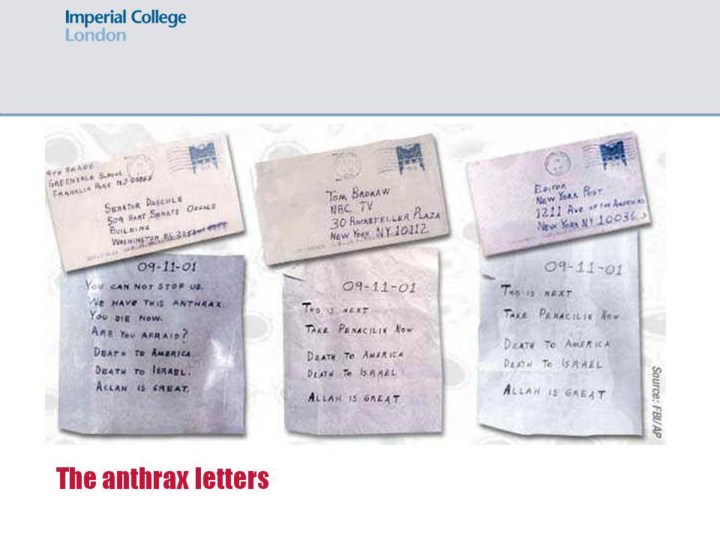 Imperial College
London
4TH GRADE
GREENDALE SCHOOL
FRANKLIN PARK NJ 08852
SENATOR DASCHLE
509 HART SENATE OFFICE
BUILDING
WASHINGTON
TOM BROKAW
NBC TV
30 ROCKEFELLER PLAZA
NEW YORK NY 10112
EDITOR
NEW YORK POST
1211 AVE. OF THE AMERICAS
NEW YORK NY 10036
09-11-01
YOU CAN NOT STOP US.
WE HAVE THIS ANTHRAX.
YOU DIE NOW.
ARE YOU AFRAID?
DEATH TO AMERICA.
DEATH TO ISRAEL.
ALLAH IS GREAT.
09-11-01
THIS IS NEXT
TAKE PENACILIN NOW
DEATH TO AMERICA
DEATH TO ISRAEL
ALLAH IS GREAT
09-11-01
THIS IS NEXT
TAKE PENACILIN NOW
DEATH TO AMERICA
DEATH TO ISRAEL
ALLAH IS GREAT
Source: FBI/AP
The anthrax letters